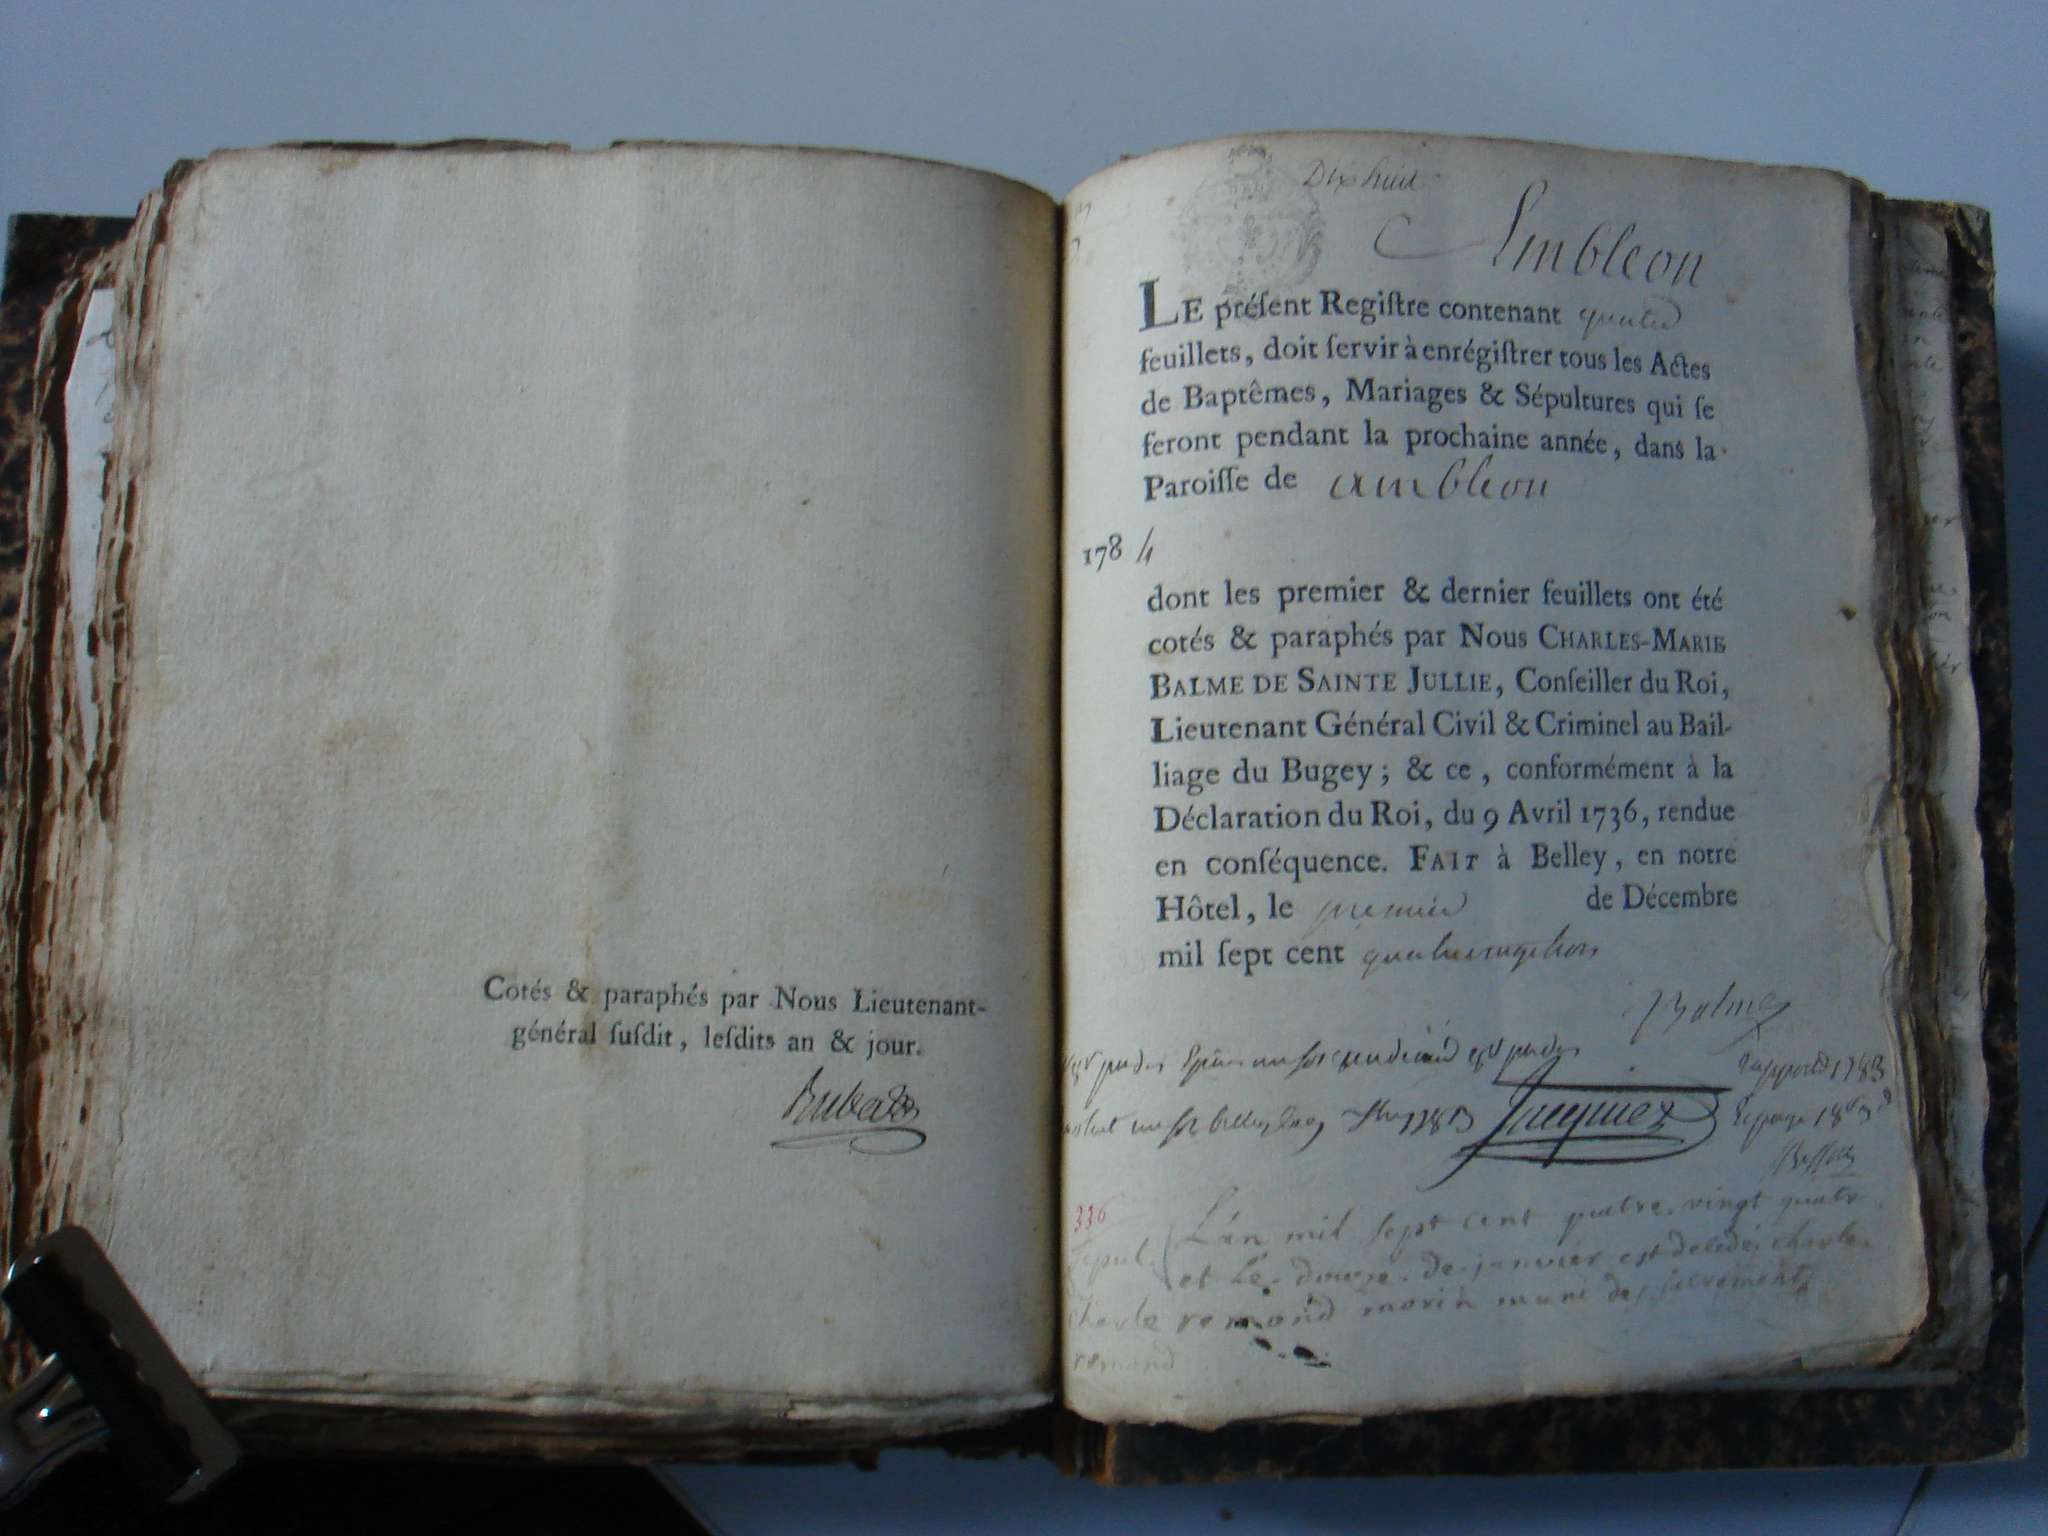 Cotés & paraphés par Nous Lieutenant-
général ſuſdit, leſdits an & jour.
Dix huit
Ambleon
LE préſent Regiſtre contenant quatre
feuillets, doit ſervir à enrégiſtrer tous les Actes
de Baptêmes, Mariages & Sépultures qui ſe
feront pendant la prochaine année, dans la
Paroiſſe de ambleon
1784
dont les premier & dernier feuillets ont été
cotés & paraphés par Nous CHARLES-MARIE
BALME DE SAINTE JULLIE, Conſeiller du Roi,
Lieutenant Général Civil & Criminel au Bail-
liage du Bugey; & ce, conformément à la
Déclaration du Roi, du 9 Avril 1736, rendue
en conſéquence. FAIT à Belley, en notre
Hôtel, le premier de Décembre
mil ſept cent quatrevingt trois
Balme
Jacquier
336
L'an mil sept cent quatre. vingt quatr
sepul. et le. douze. de. janvier est décédé charle.
charle remond morin muni des sacrements
remond